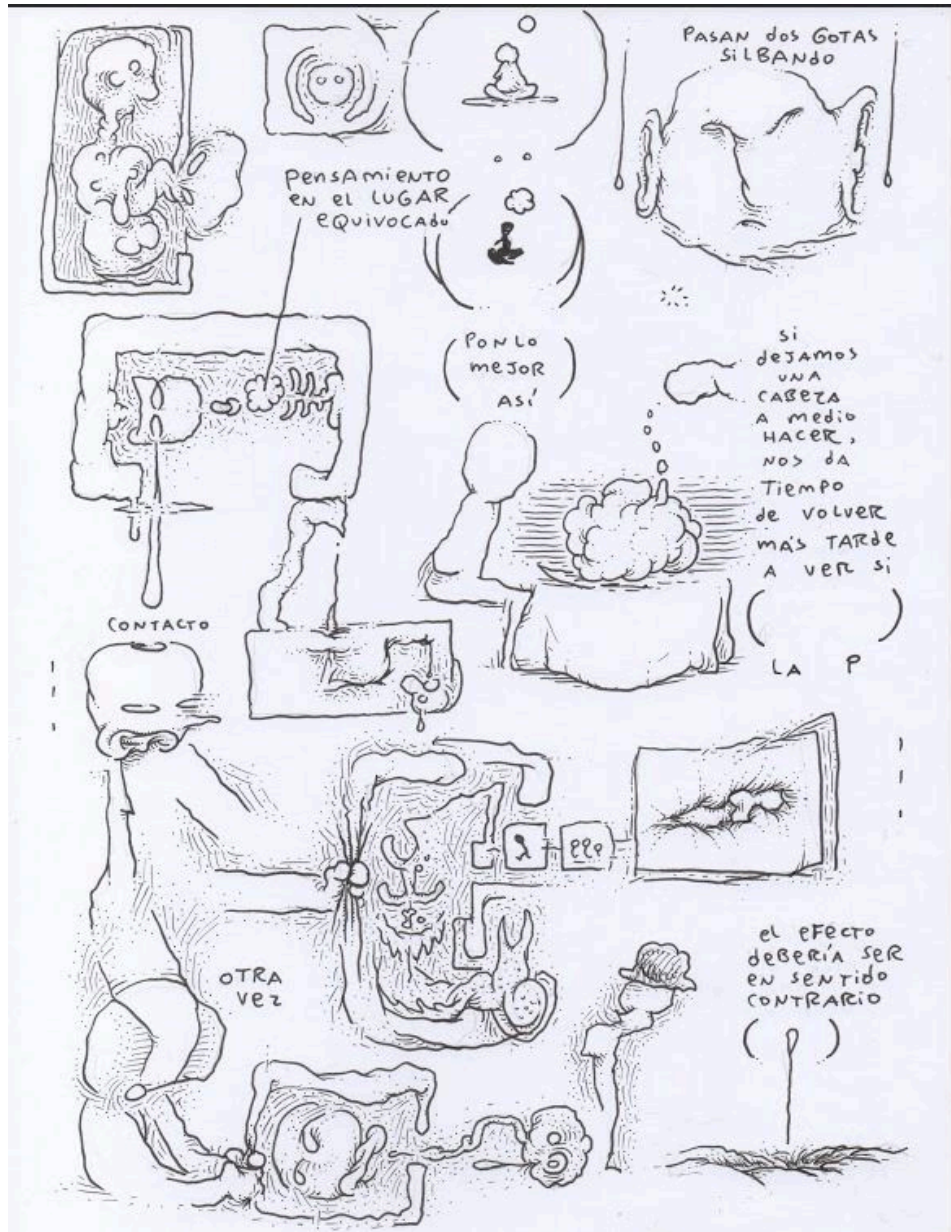 PASAN DOS GOTAS
SILBANDO
PENSAMIENTO
EN EL LUGAR
EQUIVOCADO
PONLO
MEJOR
ASÍ
SI
DEJAMOS
UNA
CABEZA
A MEDIO
HACER,
NOS DA
TIEMPO
DE VOLVER
MÁS TARDE
A VER SI
LA P
CONTACTO
OTRA
VEZ
EL EFECTO
DEBERÍA SER
EN SENTIDO
CONTRARIO